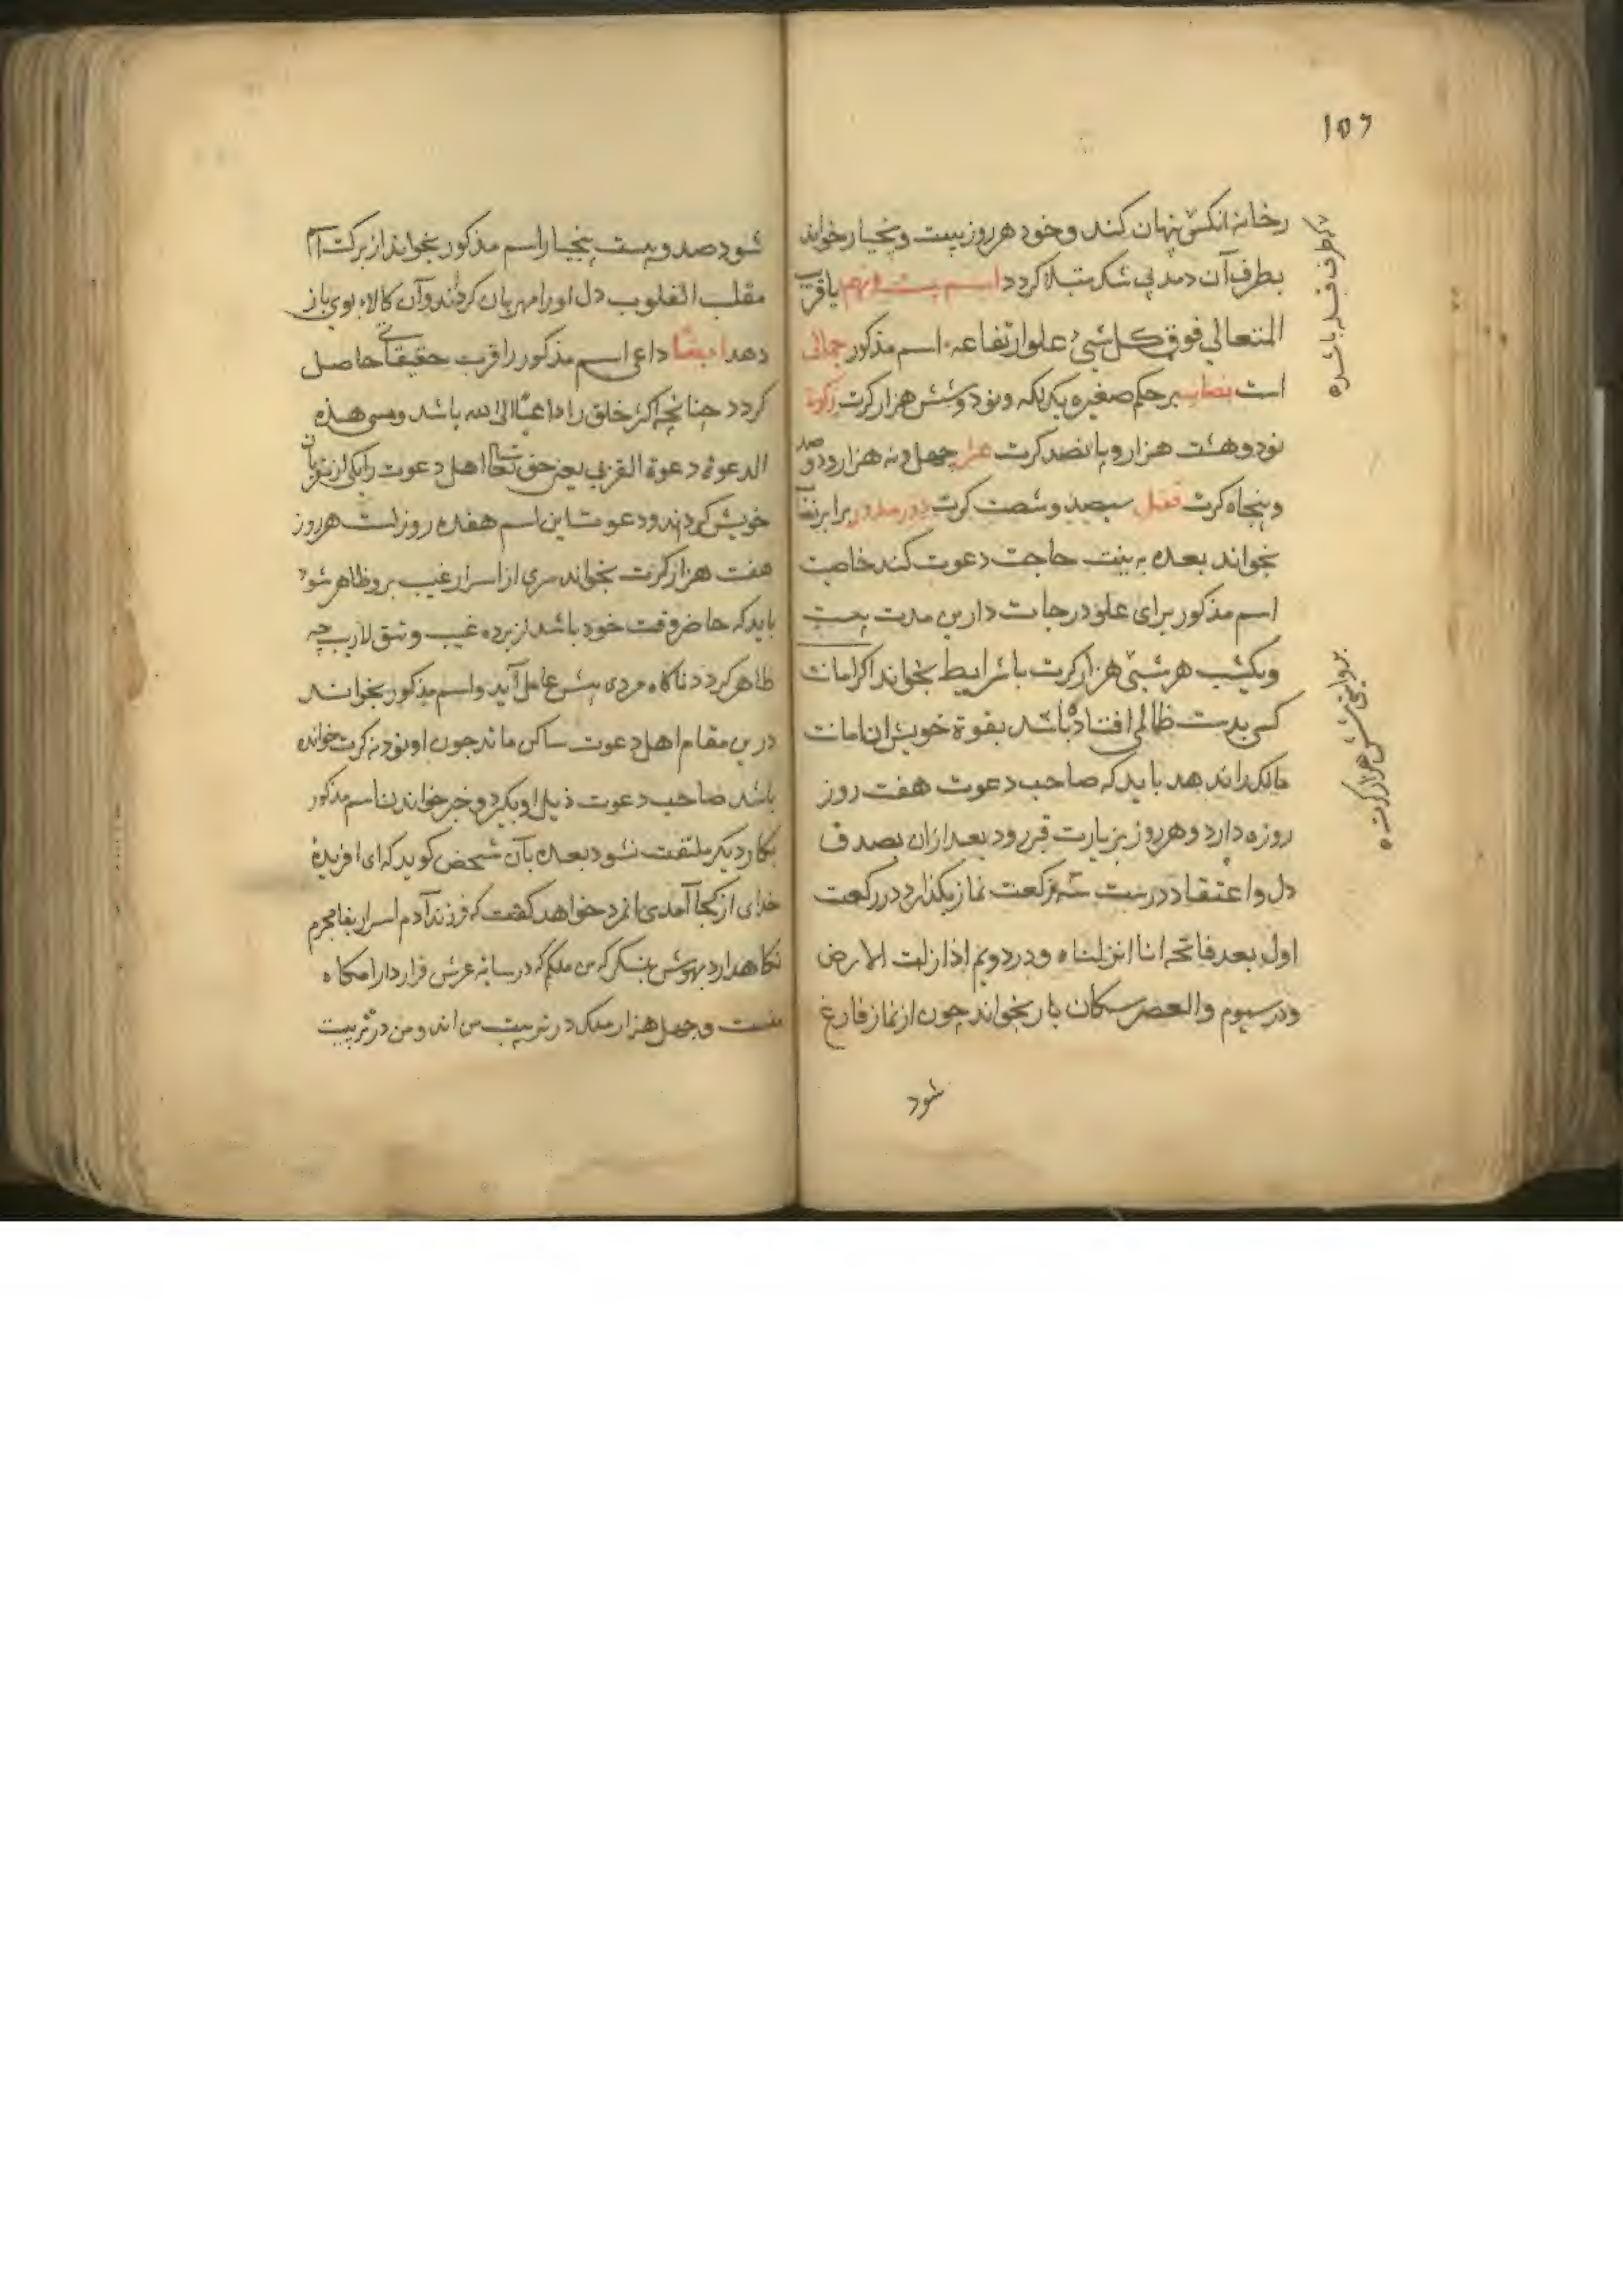 ۱۵۶
رخانه انکس پنهان کند و خود هر روز بیست و پنجبار خواند
بطرف آن دمد بی شک مبتلا کردد اسم بیست و نهم یا قریب
المتعالی فوق کل شیء علو ارتفاعه اسم مذکور جمالی
است نصاب بر حکم صغیره یک لکه و نود و شش هزار کرت زکوة
نود و هشت هزار و پانصد کرت عشر چهل و نه هزار و دو صد
و پنجاه کرت قفل سیصد و شصت کرت دور مدور برابر نصاب
بخواند بعده به نیت حاجت دعوت کند خاصیت
اسم مذکور برای علو درجات دارین مدت بیست
و یکشب هر شبی هزار کرت با شرایط بخواند اکر امانت
کسی بدست ظالمی افتاده باشد بقوة خویش ان امانت
مالک را ندهد باید که صاحب دعوت هفت روز
روزه دارد و هر روز بزیارت قبر رود بعد ازان بصدق
دل و اعتقاد درست سه رکعت نماز بکذارد در رکعت
اول بعد فاتحه انا انزلناه و در دویم اذا زلزلت الارض
و در سیوم والعصر سکان بار بخواند چون از نماز فارغ
شود
شود صد و بیست پنجبار اسم مذکور بخواند از برکت اسم
مقلب القلوب دل او را مهربان کرداند و آن کالاء بوی باز
دهد ایضا داعی اسم مذکور را قرب حقیقی حاصل
کردد چنانچه اکثر خلق را داعیا الی الله باشد و سمی هذه
الدعوة دعوة القربی یعنی حق تعالی اهل دعوت را یکی از مقربان
خویش کرداند و دعوت این اسم هفده روز است هر روز
هفت هزار کرت بخواند سری از اسرار غیب بر و ظاهر شود
باید که حاضر وقت خود باشد از پرده غیب و شق لاریب چه
ظاهر کردد ناکاه مردی پیش عامل آید و اسم مذکور بخواند
درین مقام اهل دعوت ساکن ماند چون او نود نه کرت خوانده
باشد صاحب دعوت ذیل او بکیرد و خبر خواندن اسم مذکور
بکار دیکر ملتفت نشود بعده بآن شخص کوید که ای افریدۀ
خدای از کجا آمدی انمرد خواهد کفت که فرزند آدم اسرار
نکاهدار بهوش بنکر که من ملکم که در سایه عرش قرار دارامکاه
منست و چهل هزار ملک در تربیت من اند و من در تربیت